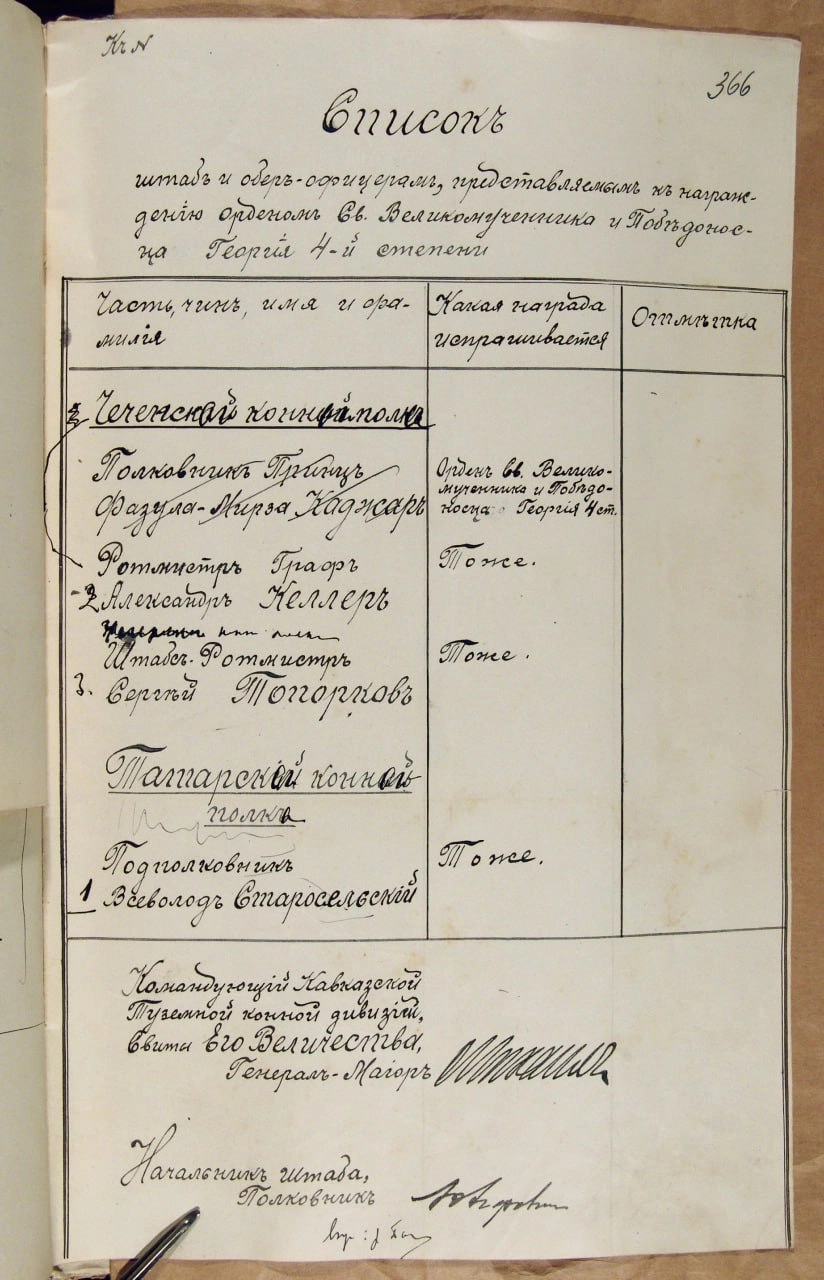 Къ №
366
Списокъ
штабъ и оберъ-офицерамъ, представляемымъ къ награж-
денію орденомъ Св. Великомученника и Побѣдонос-
ца Георгія 4-й степени
Часть, чинъ, имя и фа-
милія
Какая награда
испрашивается
Отмѣтка
Чеченскій конный полкъ
Полковникъ Принцъ
Фазула-Мирза Каджаръ
Орденъ Св. Велико-
мученника и Побѣдо-
носца Георгія 4 ст.
Ротмистръ Графъ
Тоже.
2 Александръ Келлеръ
Штабс-Ротмистръ
Тоже.
3. Сергѣй Топорковъ
Татарскій конный
полкъ
Подполковникъ
Тоже.
1 Всеволодъ Старосельскій
Командующій Кавказской
Туземной конной дивизіи,
Свиты Его Величества,
Генералъ-Маіоръ Михаилъ
Начальникъ штаба,
Полковникъ